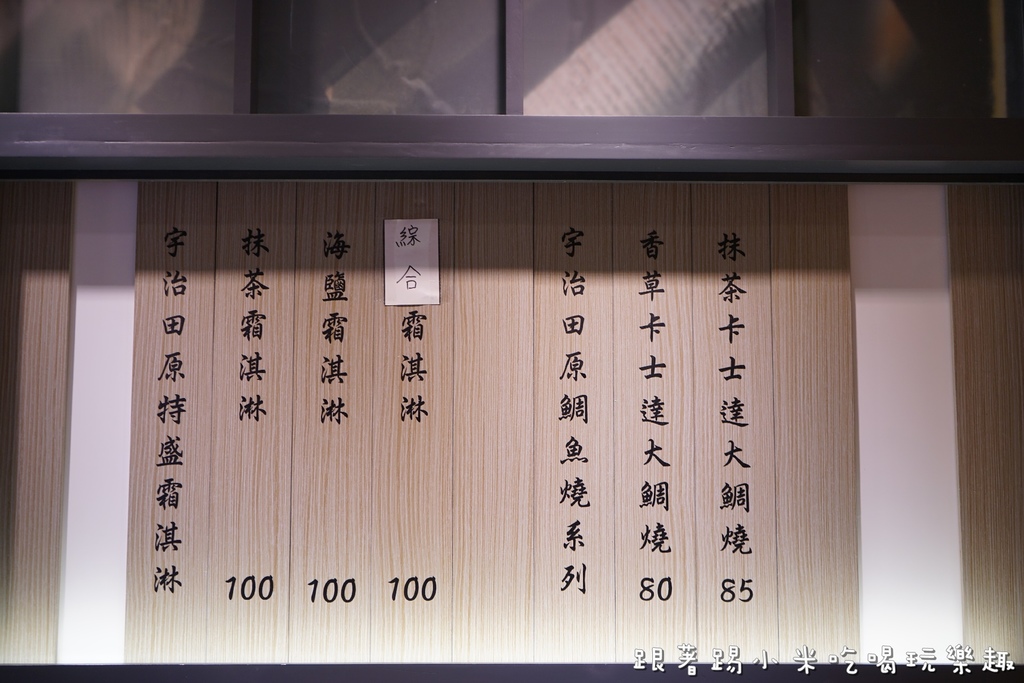 宇治田原特盛霜淇淋
抹茶霜淇淋 100
海鹽霜淇淋 100
綜合霜淇淋 100
宇治田原鯛魚燒系列
香草卡士達大鯛燒 80
抹茶卡士達大鯛燒 85
跟著踢小米吃喝玩樂趣